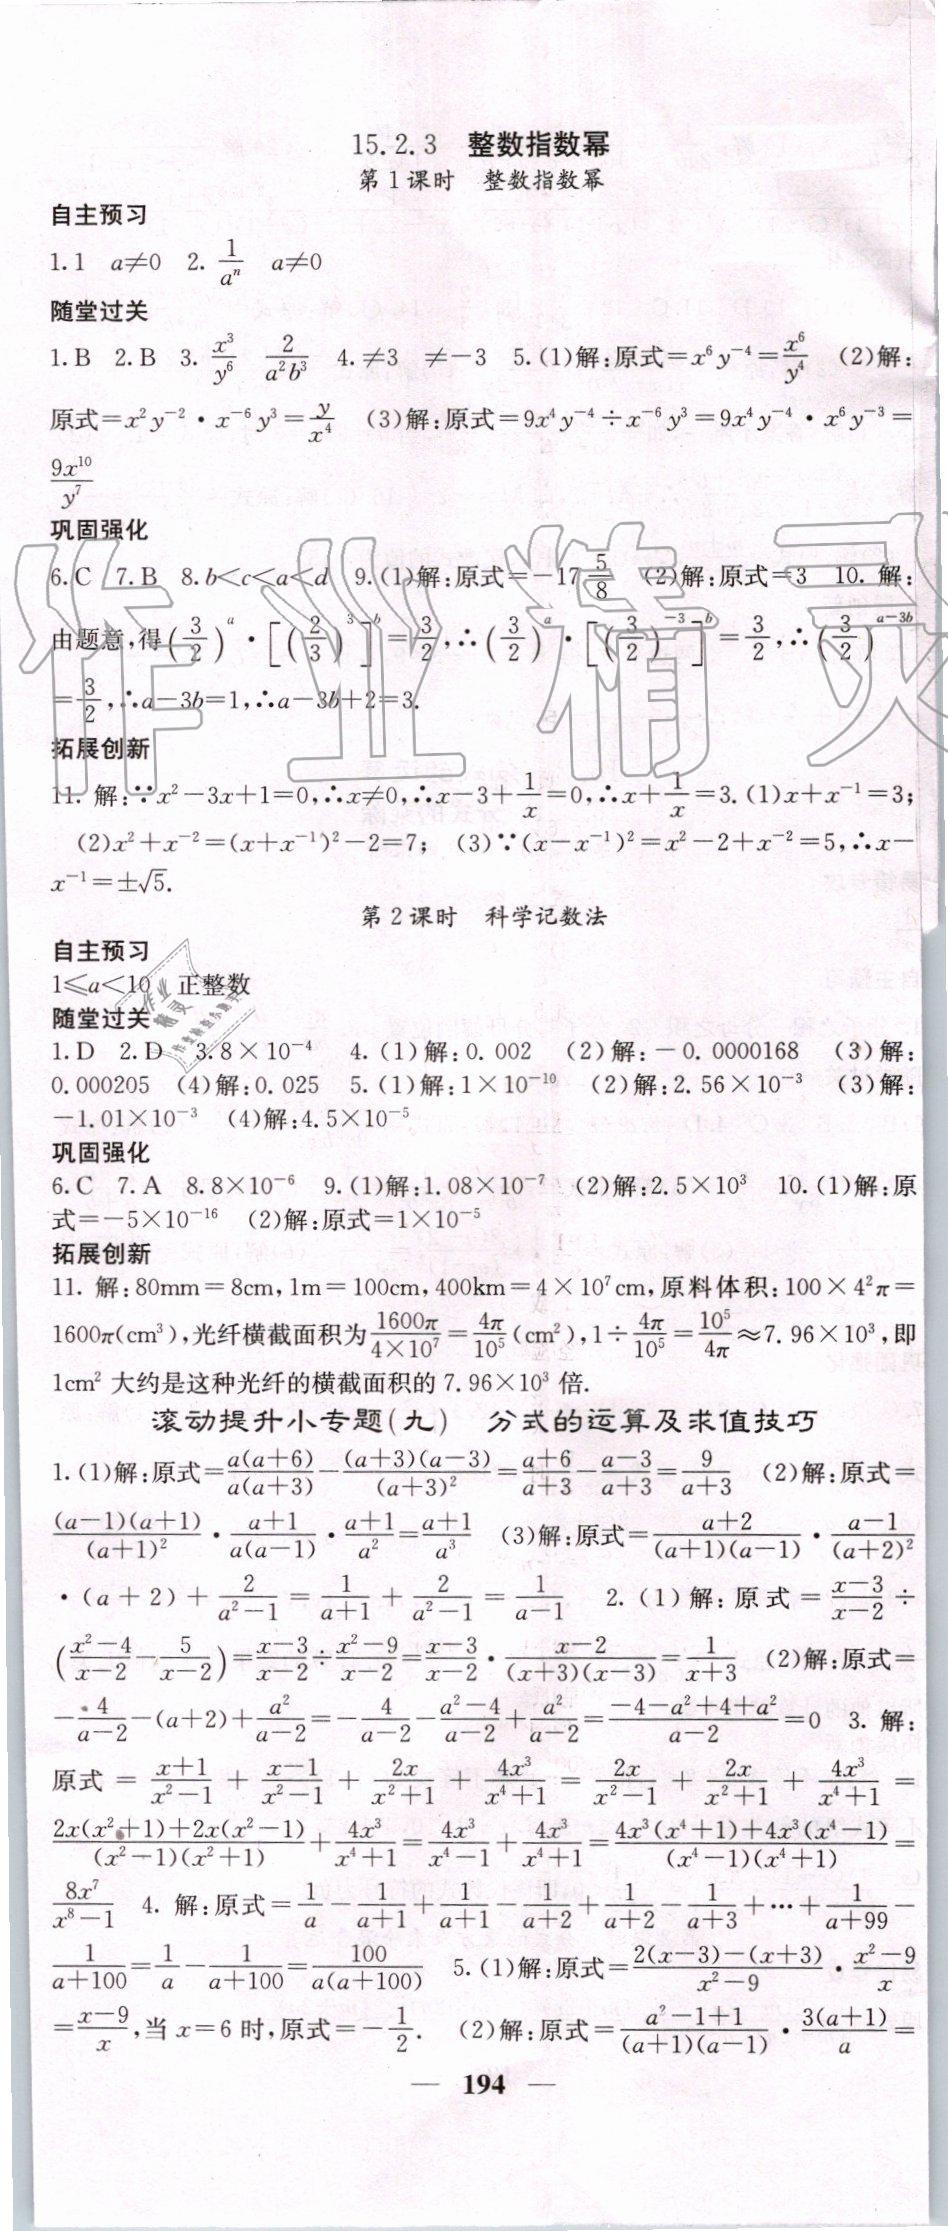 15.2.3 整数指数幂
第1课时 整数指数幂
自主预习
1.1 a≠0 2. 1/aⁿ a≠0
随堂过关
1.B 2.B 3. x³/y⁶ 2/(a²b³) 4.≠3 ≠-3 5.(1)解:原式=x⁶y⁻⁴=x⁶/y⁴ (2)解:
原式=x²y⁻²·x⁻⁶y³=y/x⁴ (3)解:原式=9x⁴y⁻⁴÷x⁻⁶y³=9x⁴y⁻⁴·x⁶y⁻³=
9x¹⁰/y⁷
巩固强化
6.C 7.B 8.b<c<a<d 9.(1)解:原式=-17 5/8 (2)解:原式=3 10. 解:
由题意,得(3/2)^a·[(2/3)³]^b=3/2,∴(3/2)^a·[(3/2)⁻³]^b=3/2,∴(3/2)^(a-3b)
=3/2,∴a-3b=1,∴a-3b+2=3.
拓展创新
11. 解:∵x²-3x+1=0,∴x≠0,∴x-3+1/x=0,∴x+1/x=3.(1)x+x⁻¹=3;
(2)x²+x⁻²=(x+x⁻¹)²-2=7; (3)∵(x-x⁻¹)²=x²-2+x⁻²=5,∴x-
x⁻¹=±√5.
第2课时 科学记数法
自主预习
1≤a<10 正整数
随堂过关
1.D 2.D 3.8×10⁻⁴ 4.(1)解:0.002 (2)解:-0.0000168 (3)解:
0.000205 (4)解:0.025 5.(1)解:1×10⁻¹⁰ (2)解:2.56×10⁻³ (3)解:
-1.01×10⁻³ (4)解:4.5×10⁻⁵
巩固强化
6.C 7.A 8.8×10⁻⁶ 9.(1)解:1.08×10⁻⁷ (2)解:2.5×10³ 10.(1)解:原
式=-5×10⁻¹⁶ (2)解:原式=1×10⁻⁵
拓展创新
11. 解:80mm=8cm,1m=100cm,400km=4×10⁷cm,原料体积:100×4²π=
1600π(cm³),光纤横截面积为1600π/(4×10⁷)=4π/10⁵(cm²),1÷4π/10⁵=10⁵/4π≈7.96×10³,即
1cm² 大约是这种光纤的横截面积的 7.96×10³ 倍.
滚动提升小专题(九) 分式的运算及求值技巧
1.(1)解:原式=a(a+6)/a(a+3)-(a+3)(a-3)/(a+3)²=(a+6)/(a+3)-(a-3)/(a+3)=9/(a+3) (2)解:原式=
(a-1)(a+1)/(a+1)²·(a+1)/a(a-1)·(a+1)/a²=(a+1)/a³ (3)解:原式=(a+2)/(a+1)(a-1)·(a-1)/(a+2)²
·(a+2)+2/(a²-1)=1/(a+1)+2/(a²-1)=1/(a-1) 2.(1)解:原式=(x-3)/(x-2)÷
((x²-4)/(x-2)-5/(x-2))=(x-3)/(x-2)÷(x²-9)/(x-2)=(x-3)/(x-2)·(x-2)/(x+3)(x-3)=1/(x+3) (2)解:原式=
-4/(a-2)-(a+2)+a²/(a-2)=-4/(a-2)-(a²-4)/(a-2)+a²/(a-2)=(-4-a²+4+a²)/(a-2)=0 3. 解:
原式=(x+1)/(x²-1)+(x-1)/(x²-1)+2x/(x²+1)+4x³/(x⁴+1)=2x/(x²-1)+2x/(x²+1)+4x³/(x⁴+1)=
(2x(x²+1)+2x(x²-1))/(x²-1)(x²+1)+4x³/(x⁴+1)=4x³/(x⁴-1)+4x³/(x⁴+1)=(4x³(x⁴+1)+4x³(x⁴-1))/(x⁴-1)(x⁴+1)=
8x⁷/(x⁸-1) 4. 解:原式=1/a-1/(a+1)+1/(a+1)-1/(a+2)+1/(a+2)-1/(a+3)+…+1/(a+99)-
1/(a+100)=1/a-1/(a+100)=100/a(a+100) 5.(1)解:原式=(2(x-3)-(x+3))/(x²-9)·(x²-9)/x
=(x-9)/x,当 x=6 时,原式=-1/2. (2)解:原式=(a²-1+1)/(a+1)(a-1)·3(a+1)/a=
— 194 —
作业精灵
作业
精灵